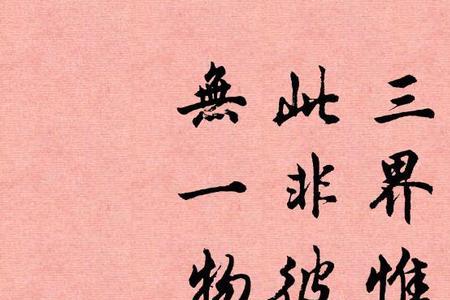 三界惟
此非彼
無一物